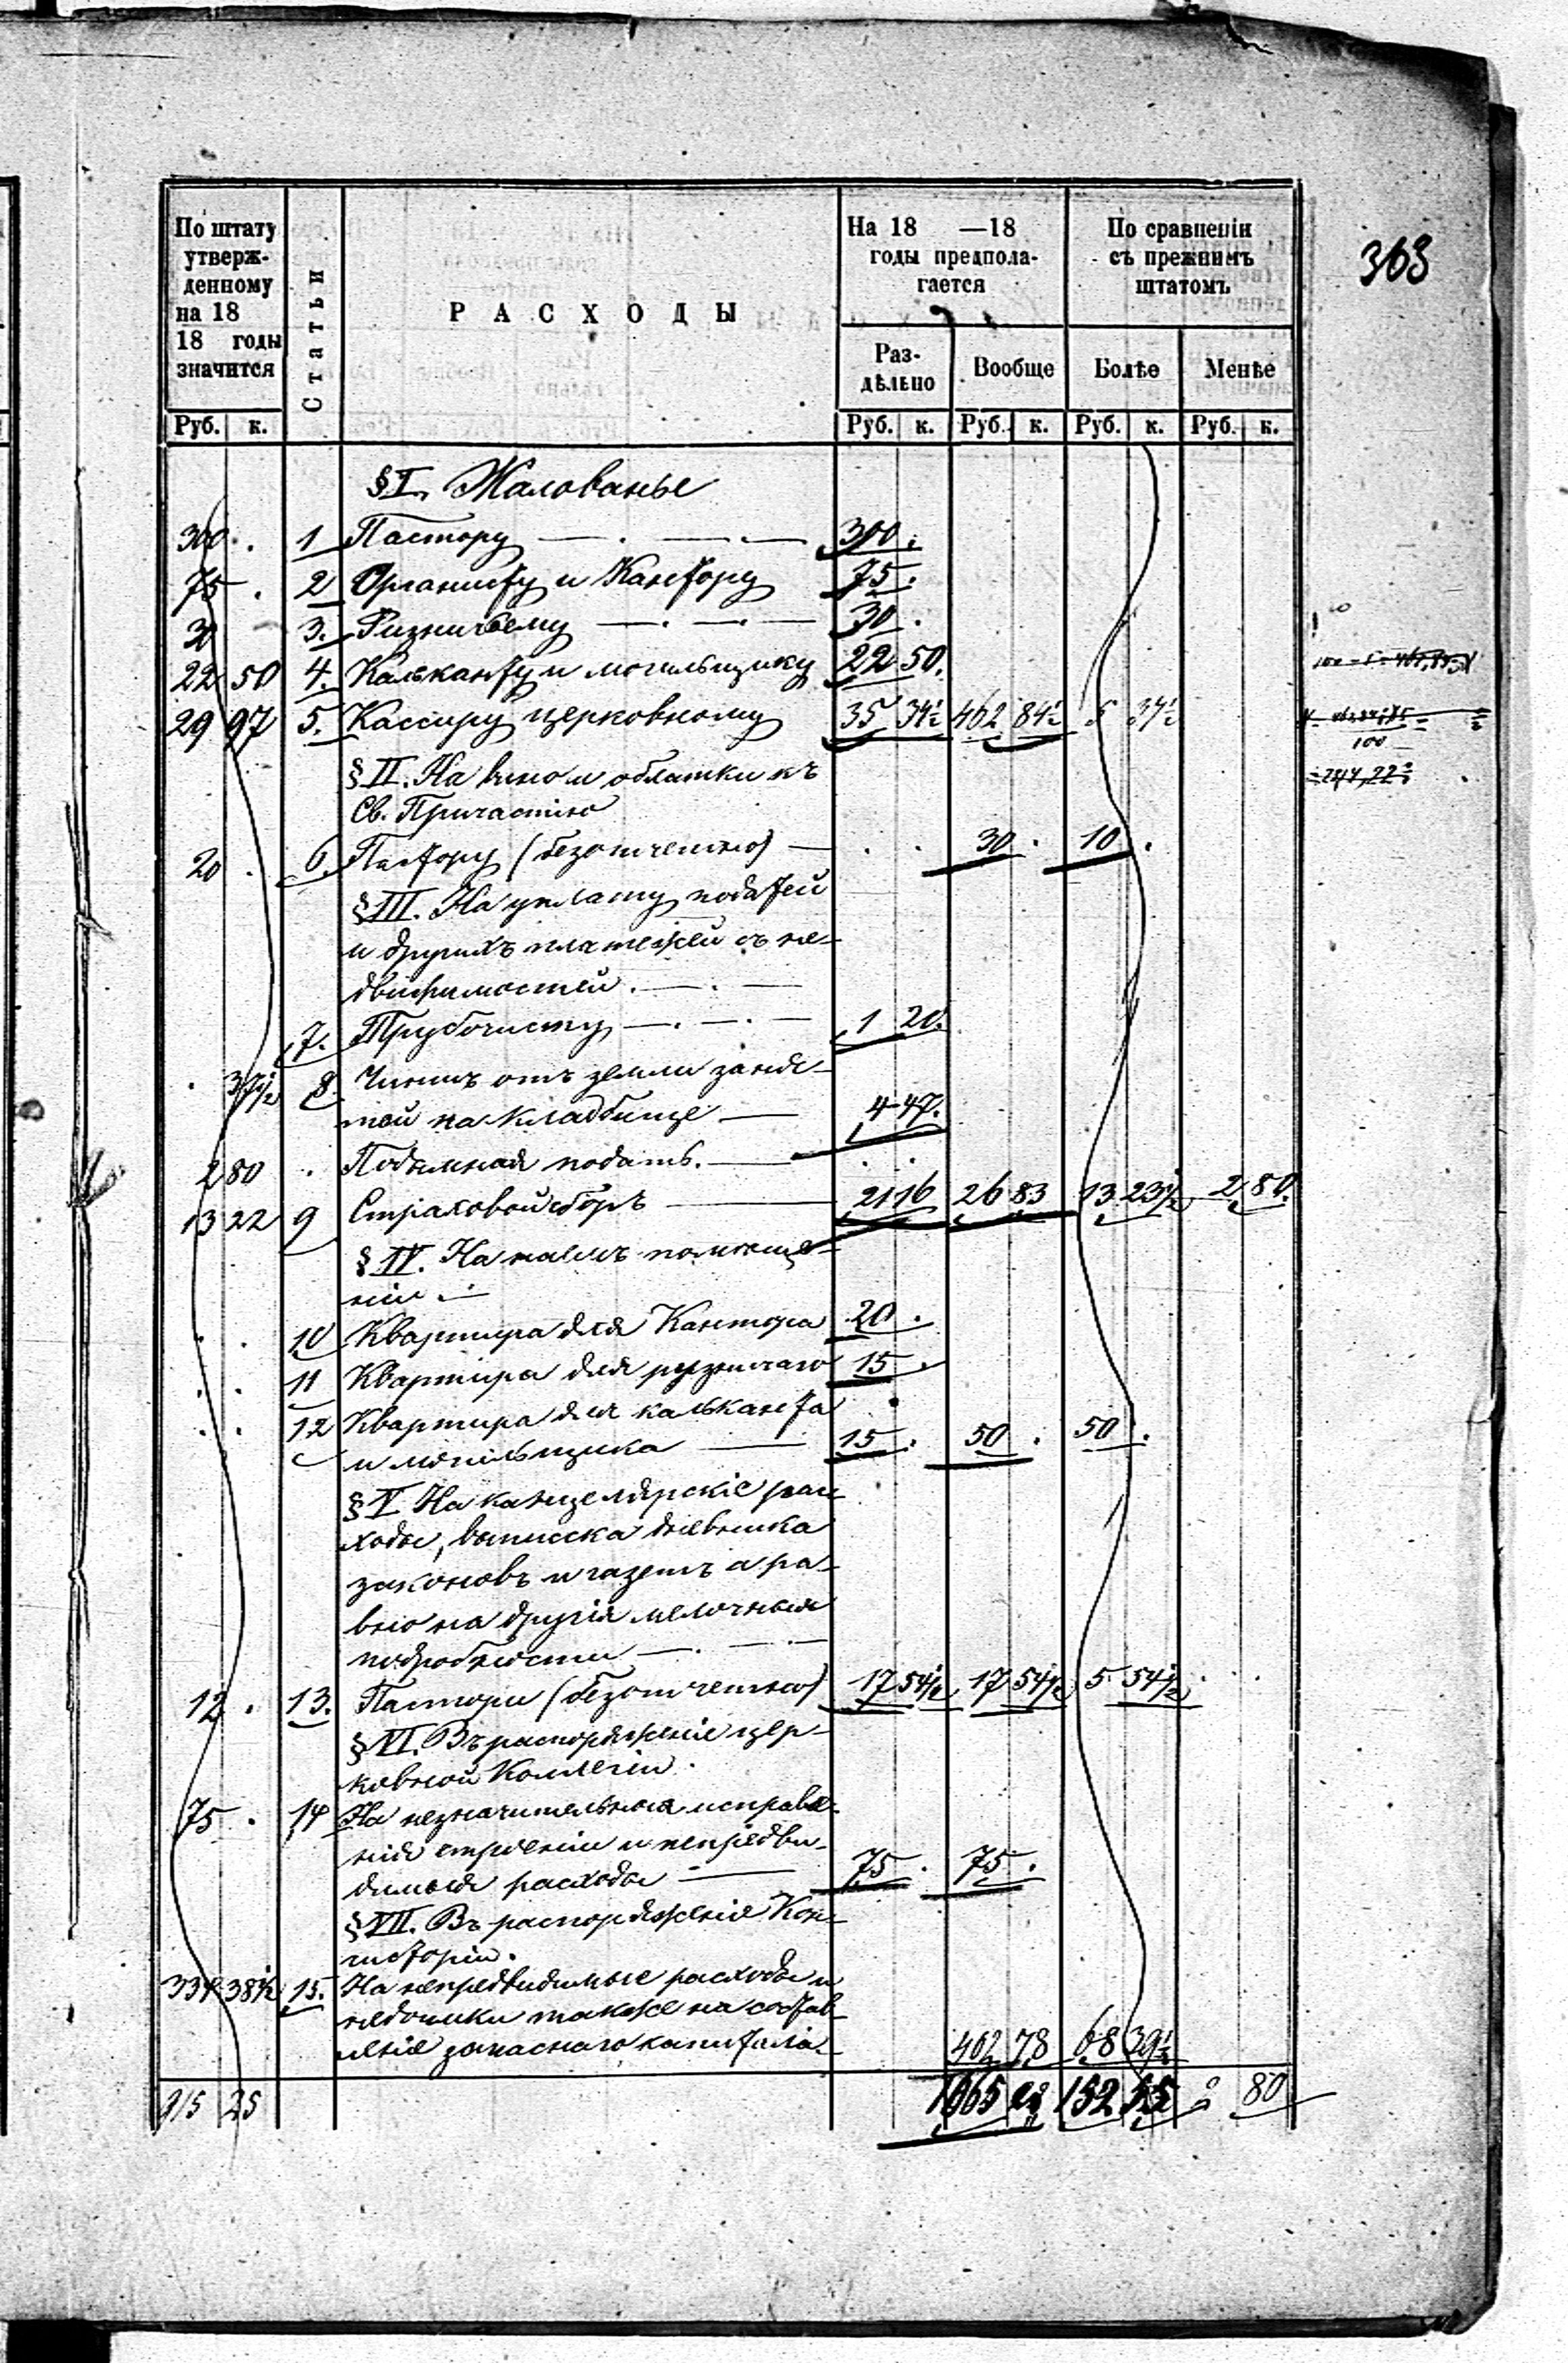 363
По штату
утверж-
денному
на 18
18 годы
значится
Статьи
РАСХОДЫ
На 18 —18
годы предпола-
гается
По сравненiи
съ прежнимъ
штатомъ
Раз-
дѣльно
Вообще
Болѣе
Менѣе
Руб. к. Руб. к. Руб. к. Руб. к. Руб. к.
§ I. Жалованье
300 . 1 Пастору — . — . — 300 .
75 . 2 Органисту и Кантору 75 .
30 3. Ризничьему — . — . — 30 .
22 50 4. Кальканту и могильщику 22 50.
29 97 5. Кассиру церковному 35 34½ 462 84½ 5 34½
100
§ II. На вино и облатки къ
Св. Причастiю
20 . 6. Пастору (безотчетно) — . . 30 . 10 .
§ III. На уплату податей
и другихъ платежей съ не-
движимостей . — . —
7. Трубочисту — . — . — 1 20.
. 37½ 8 Чиншъ отъ земли заня-
той на кладбище — 4 47.
2 80 . Подымная подать. — . .
13 22 9 Страховой сборъ — 21 16 26 83 13 23½ 2 80.
§ IV. На наемъ помѣще-
нiи . —
. . 10 Квартира для Кантора 20 .
. . 11 Квартира для ризничаго 15 .
. . 12 Квартира для кальканта
и могильщика — 15 . 50 . 50 .
§ V На канцелярскiе рас-
ходы, выписка дневника
законовъ и газетъ а ра-
вно на другiя мелочныя
подробности — . — . —
12 . 13. Пастору (безотчетно) 17 54½ 17 54½ 5 54½ . . .
§ VI. Въ распоряженiе цер-
ковной Коллегiи .
75 . 14 На незначительныя исправле-
нiя строенiи и непредви-
димыя расходы — 75 . 75 .
§ VII. Въ распоряженiе Кон-
систорiи.
334 38½ 15. На непредвидимые расходы и
недоимки также на состав-
ленiе запаснаго капитала — 402 78 68 39½
915 25 1065 152 2 80